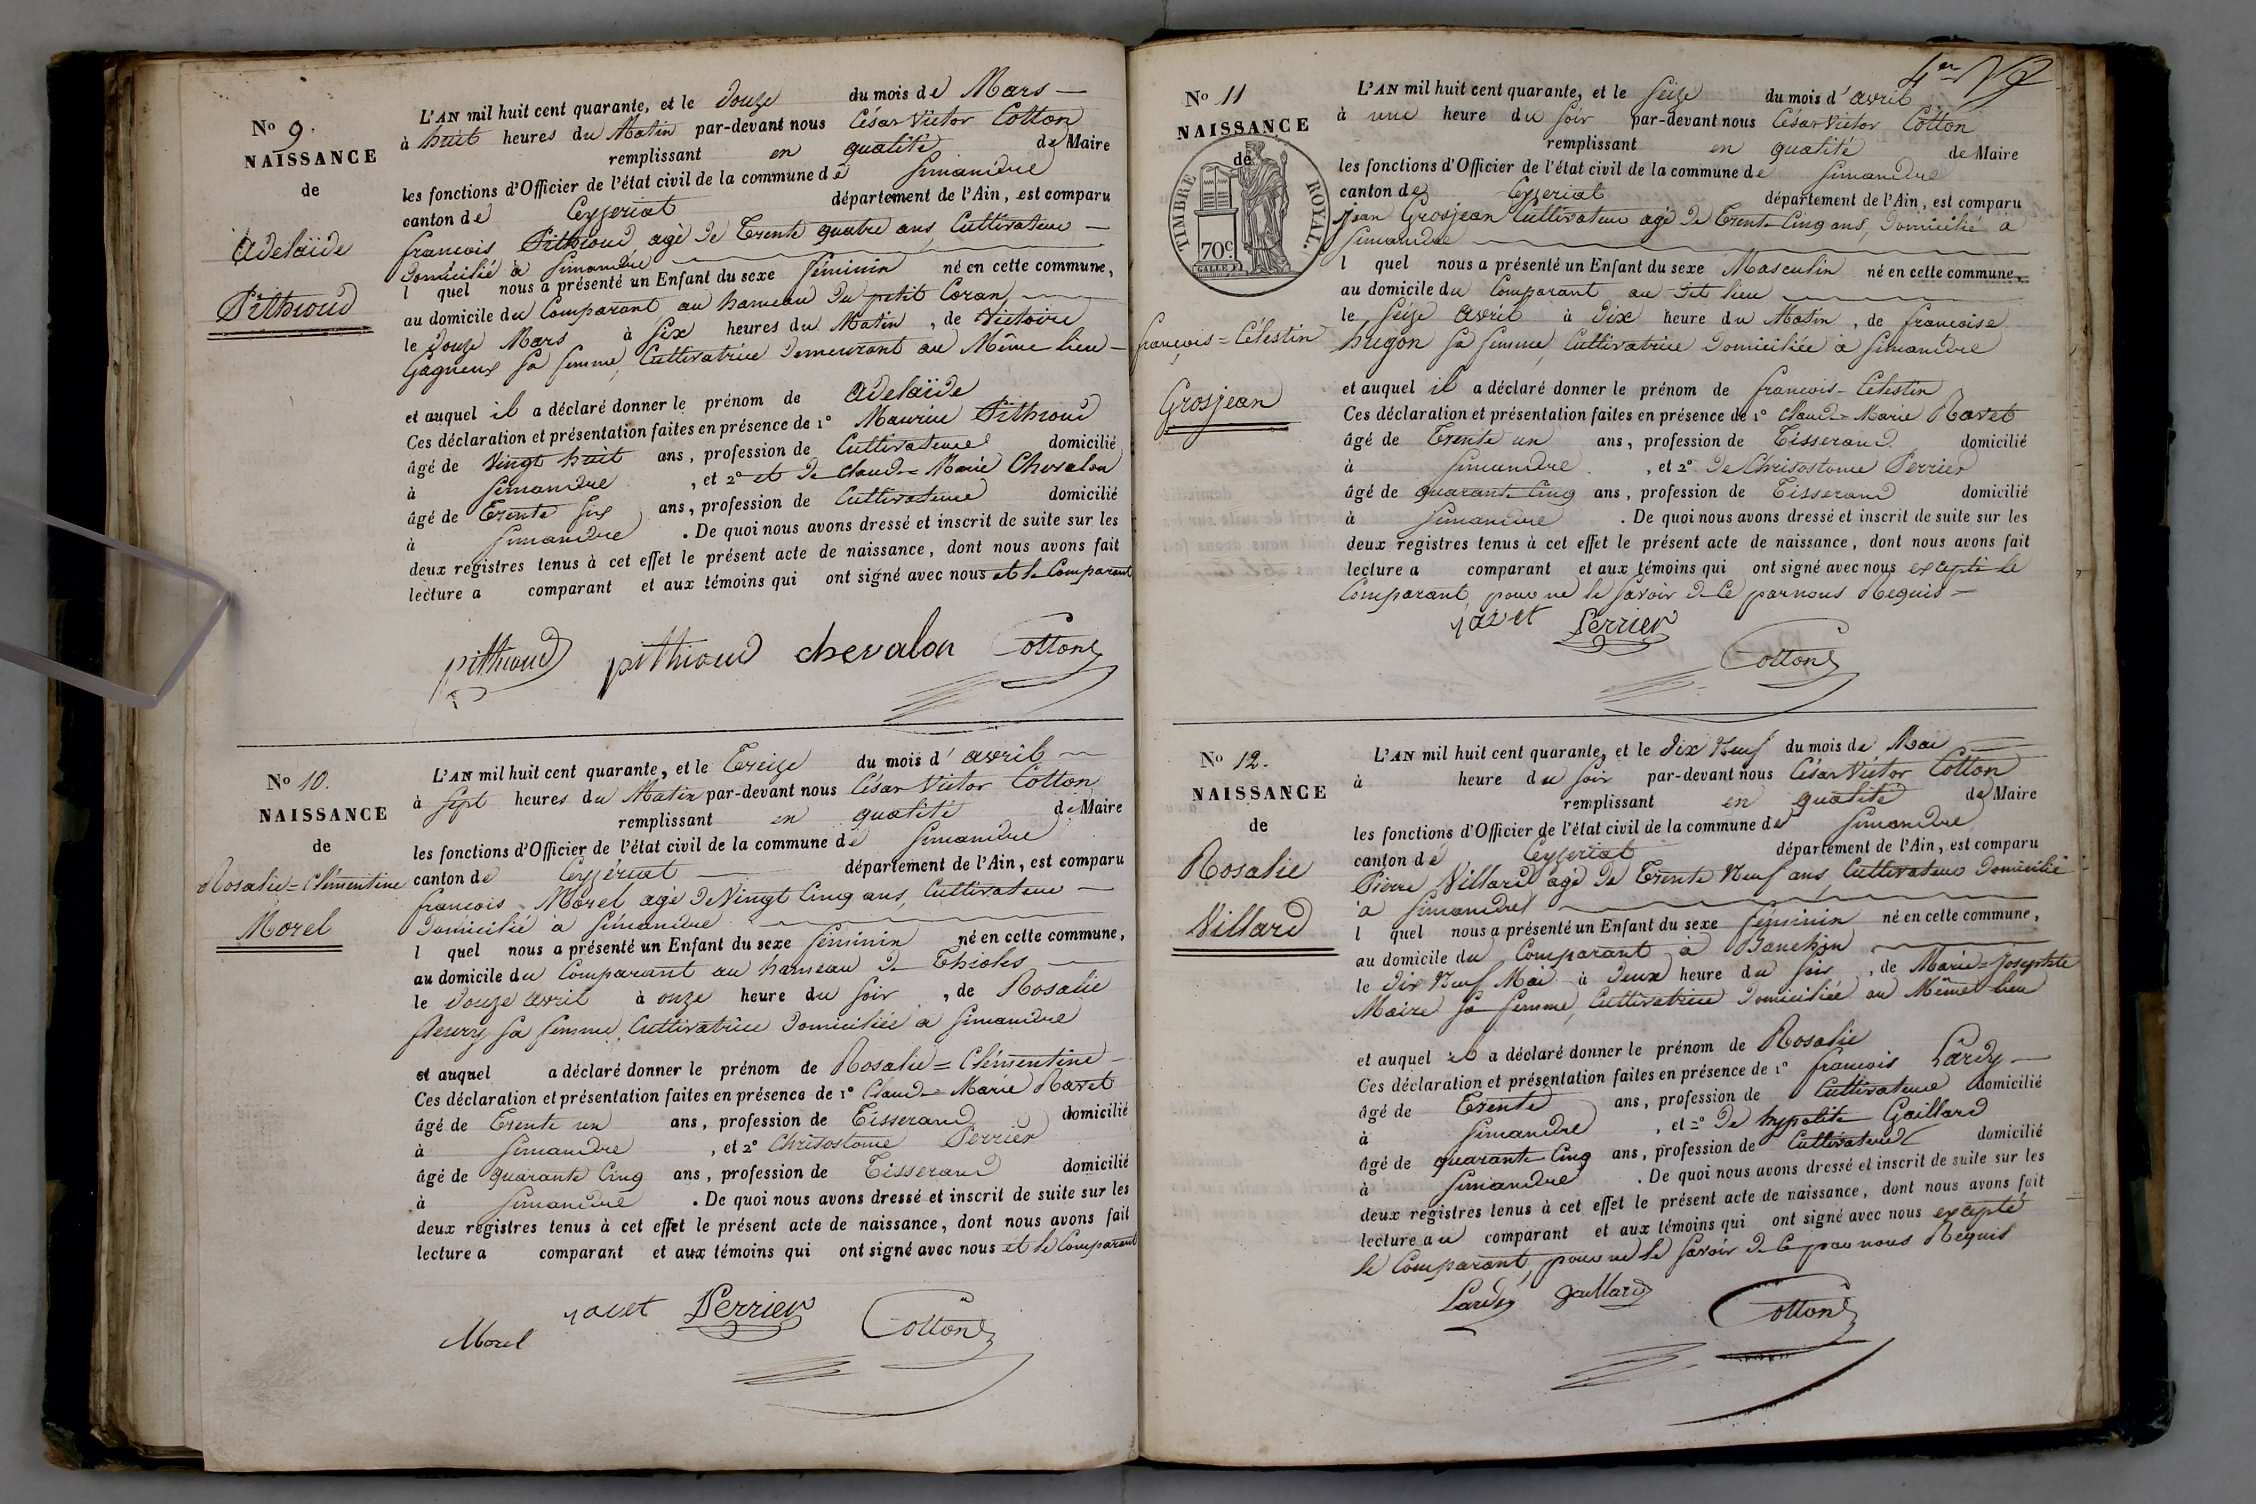 No 9.
NAISSANCE
de
Adelaïde
Pithioud
L'AN mil huit cent quarante, et le douze du mois de Mars
à huit heures du Matin par-devant nous César Victor Cotton
remplissant en qualité de Maire
les fonctions d'Officier de l'état civil de la commune de Simandre
canton de Ceyzeriat département de l'Ain, est comparu
françois Pithioud agé de Trente quatre ans, Cultivateur
Domicilié à Simandre
l quel nous a présenté un Enfant du sexe féminin né en cette commune,
au domicile du Comparant au hameau du petit Coran
le douze Mars à six heures du Matin, de Victoire
Gagneux sa femme, Cultivatrice demeurant au Même lieu
et auquel il a déclaré donner le prénom de Adelaïde
Ces déclaration et présentation faites en présence de 1º Maurice Pithioud
âgé de Vingt huit ans, profession de Cultivateur domicilié
à Simandre, et 2º et de Claude=Marie Chevalon
âgé de Trente six ans, profession de Cultivateur domicilié
à Simandre. De quoi nous avons dressé et inscrit de suite sur les
deux registres tenus à cet effet le présent acte de naissance, dont nous avons fait
lecture a comparant et aux témoins qui ont signé avec nous et le Comparant
pithioud pithioud chevalon Cotton
No 10.
NAISSANCE
de
Rosalie=Clémentine
Morel
L'AN mil huit cent quarante, et le Treize du mois d'avril
à sept heures du Matin par-devant nous César Victor Cotton
remplissant en qualité de Maire
les fonctions d'Officier de l'état civil de la commune de Simandre
canton de Ceyzériat département de l'Ain, est comparu
françois Morel agé de Vingt Cinq ans, Cultivateur
Domicilié à Simandre
l quel nous a présenté un Enfant du sexe féminin né en cette commune,
au domicile du Comparant au hameau de Thioles
le douze avril à onze heure du soir, de Rosalie
fleury sa femme, Cultivatrice Domiciliée a Simandre
et auquel a déclaré donner le prénom de Rosalie=Clémentine
Ces déclaration et présentation faites en présence de 1º Claude=Marie Ravet
âgé de Trente un ans, profession de Tisserand domicilié
à Simandre, et 2º Chrisostome Perrier
âgé de quarante Cinq ans, profession de Tisserand domicilié
à Simandre. De quoi nous avons dressé et inscrit de suite sur les
deux registres tenus à cet effet le présent acte de naissance, dont nous avons fait
lecture a comparant et aux témoins qui ont signé avec nous et le Comparant
Morel ravet Perrier Cotton
No 11
NAISSANCE
de
TIMBRE ROYAL.
70c.
françois=Célestin
Grosjean
L'AN mil huit cent quarante, et le seize du mois d'avril
à une heure du soir par-devant nous César Victor Cotton
remplissant en qualité de Maire
les fonctions d'Officier de l'état civil de la commune de Simandre
canton de Ceyzeriat département de l'Ain, est comparu
jean Grosjean Cultivateur agé de Trente Cinq ans, Domicilié a
Simandre
l quel nous a présenté un Enfant du sexe Masculin né en cette commune,
au domicile du Comparant au dit lieu
le seize avril à dix heure du Matin, de francoise
hugon sa femme, Cultivatrice Domiciliée a Simandre
et auquel il a déclaré donner le prénom de françois=Célestin
Ces déclaration et présentation faites en présence de 1º Claude=Marie Ravet
âgé de Trente un ans, profession de Tisserand domicilié
à Simandre, et 2º de Chrisostome Perrier
âgé de quarante Cinq ans, profession de Tisserand domicilié
à Simandre. De quoi nous avons dressé et inscrit de suite sur les
deux registres tenus à cet effet le présent acte de naissance, dont nous avons fait
lecture a comparant et aux témoins qui ont signé avec nous excepté le
Comparant, pour ne le savoir de ce par nous Requis
ravet Perrier
Cotton
No 12.
NAISSANCE
de
Rosalie
Villard
L'AN mil huit cent quarante, et le dix Neuf du mois de Mai
à heure du soir par-devant nous César Victor Cotton
remplissant en qualité de Maire
les fonctions d'Officier de l'état civil de la commune de Simandre
canton de Ceyzeriat département de l'Ain, est comparu
Pierre Villard agé de Trente Neuf ans, Cultivateur Domicilié
a Simandre
l quel nous a présenté un Enfant du sexe féminin né en cette commune,
au domicile du Comparant à Banchin
le dix Neuf Mai à deux heure du soir, de Marie=Josephte
Maire sa femme, Cultivatrice Domiciliée au Même lieu
et auquel il a déclaré donner le prénom de Rosalie
Ces déclaration et présentation faites en présence de 1º françois Lardy
âgé de Trente ans, profession de Cultivateur domicilié
à Simandre, et 2º de hypolite Gaillard
âgé de quarante Cinq ans, profession de Cultivateur domicilié
à Simandre. De quoi nous avons dressé et inscrit de suite sur les
deux registres tenus à cet effet le présent acte de naissance, dont nous avons fait
lecture au comparant et aux témoins qui ont signé avec nous excepté
le Comparant, pour ne le savoir de ce par nous Requis
Lardy gaillard Cotton